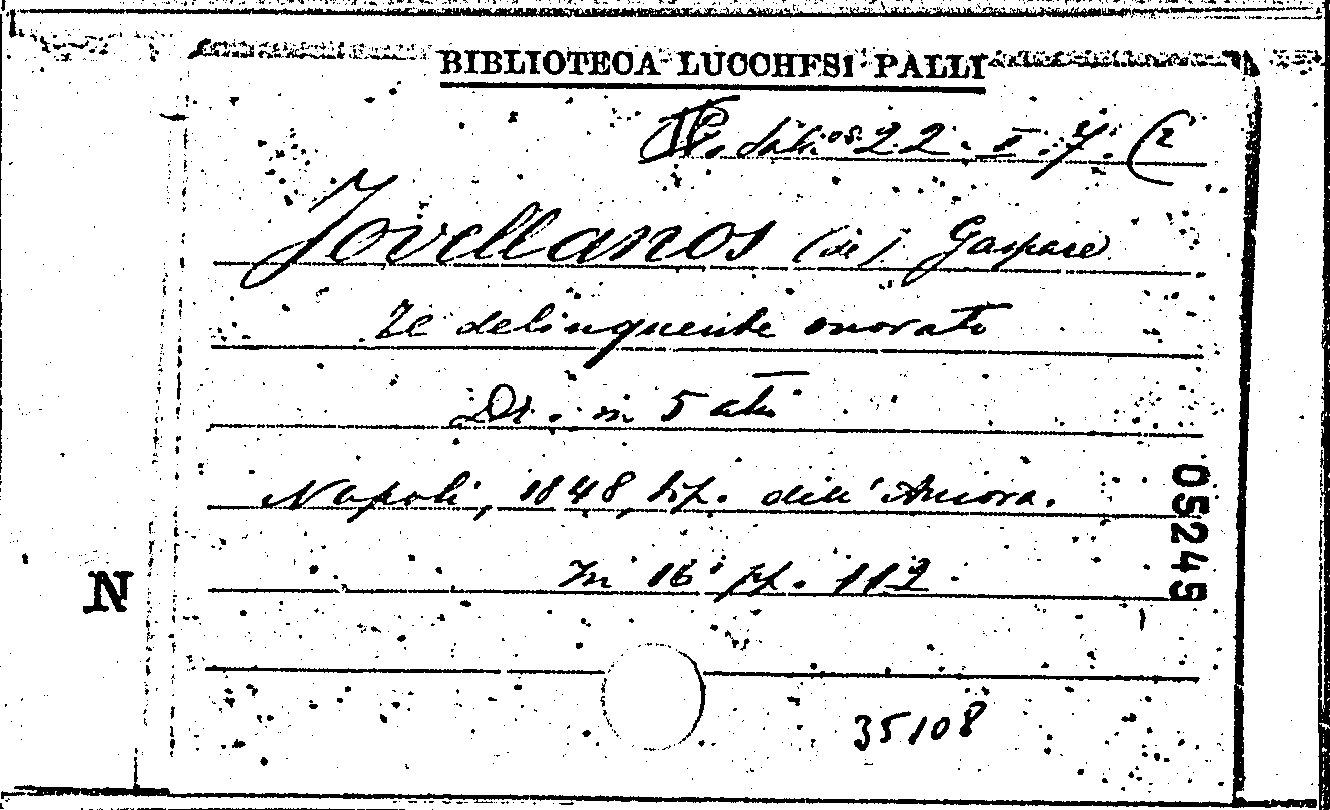 BIBLIOTECA LUCCHESI PALLI
22. II. 7. (2
Jovellanos (de) Gaspare
Il delinquente onorato
Dr. in 5 atti
Napoli, 1848, tip. dell'Ancora.
In 16° pp. 112.
05245
N
35108